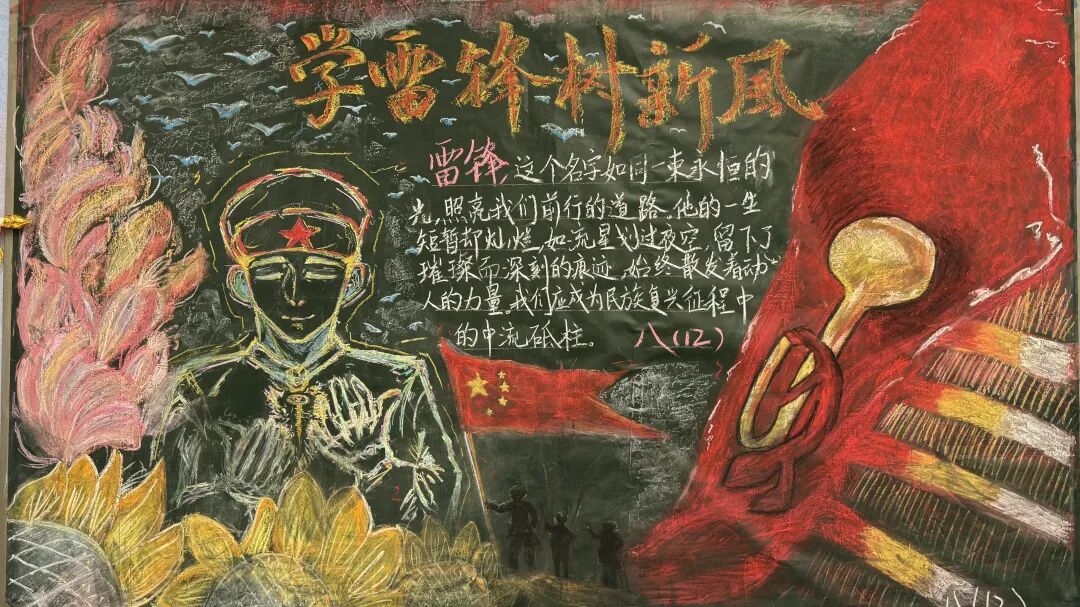 学雷锋树新风
雷锋,这个名字如同一束永恒的
光,照亮我们前行的道路。他的一生
短暂却灿烂,如流星划过夜空,留下了
璀璨而深刻的痕迹,始终散发着动
人的力量。我们应成为民族复兴征程中
的中流砥柱。 八(12)
八(12)